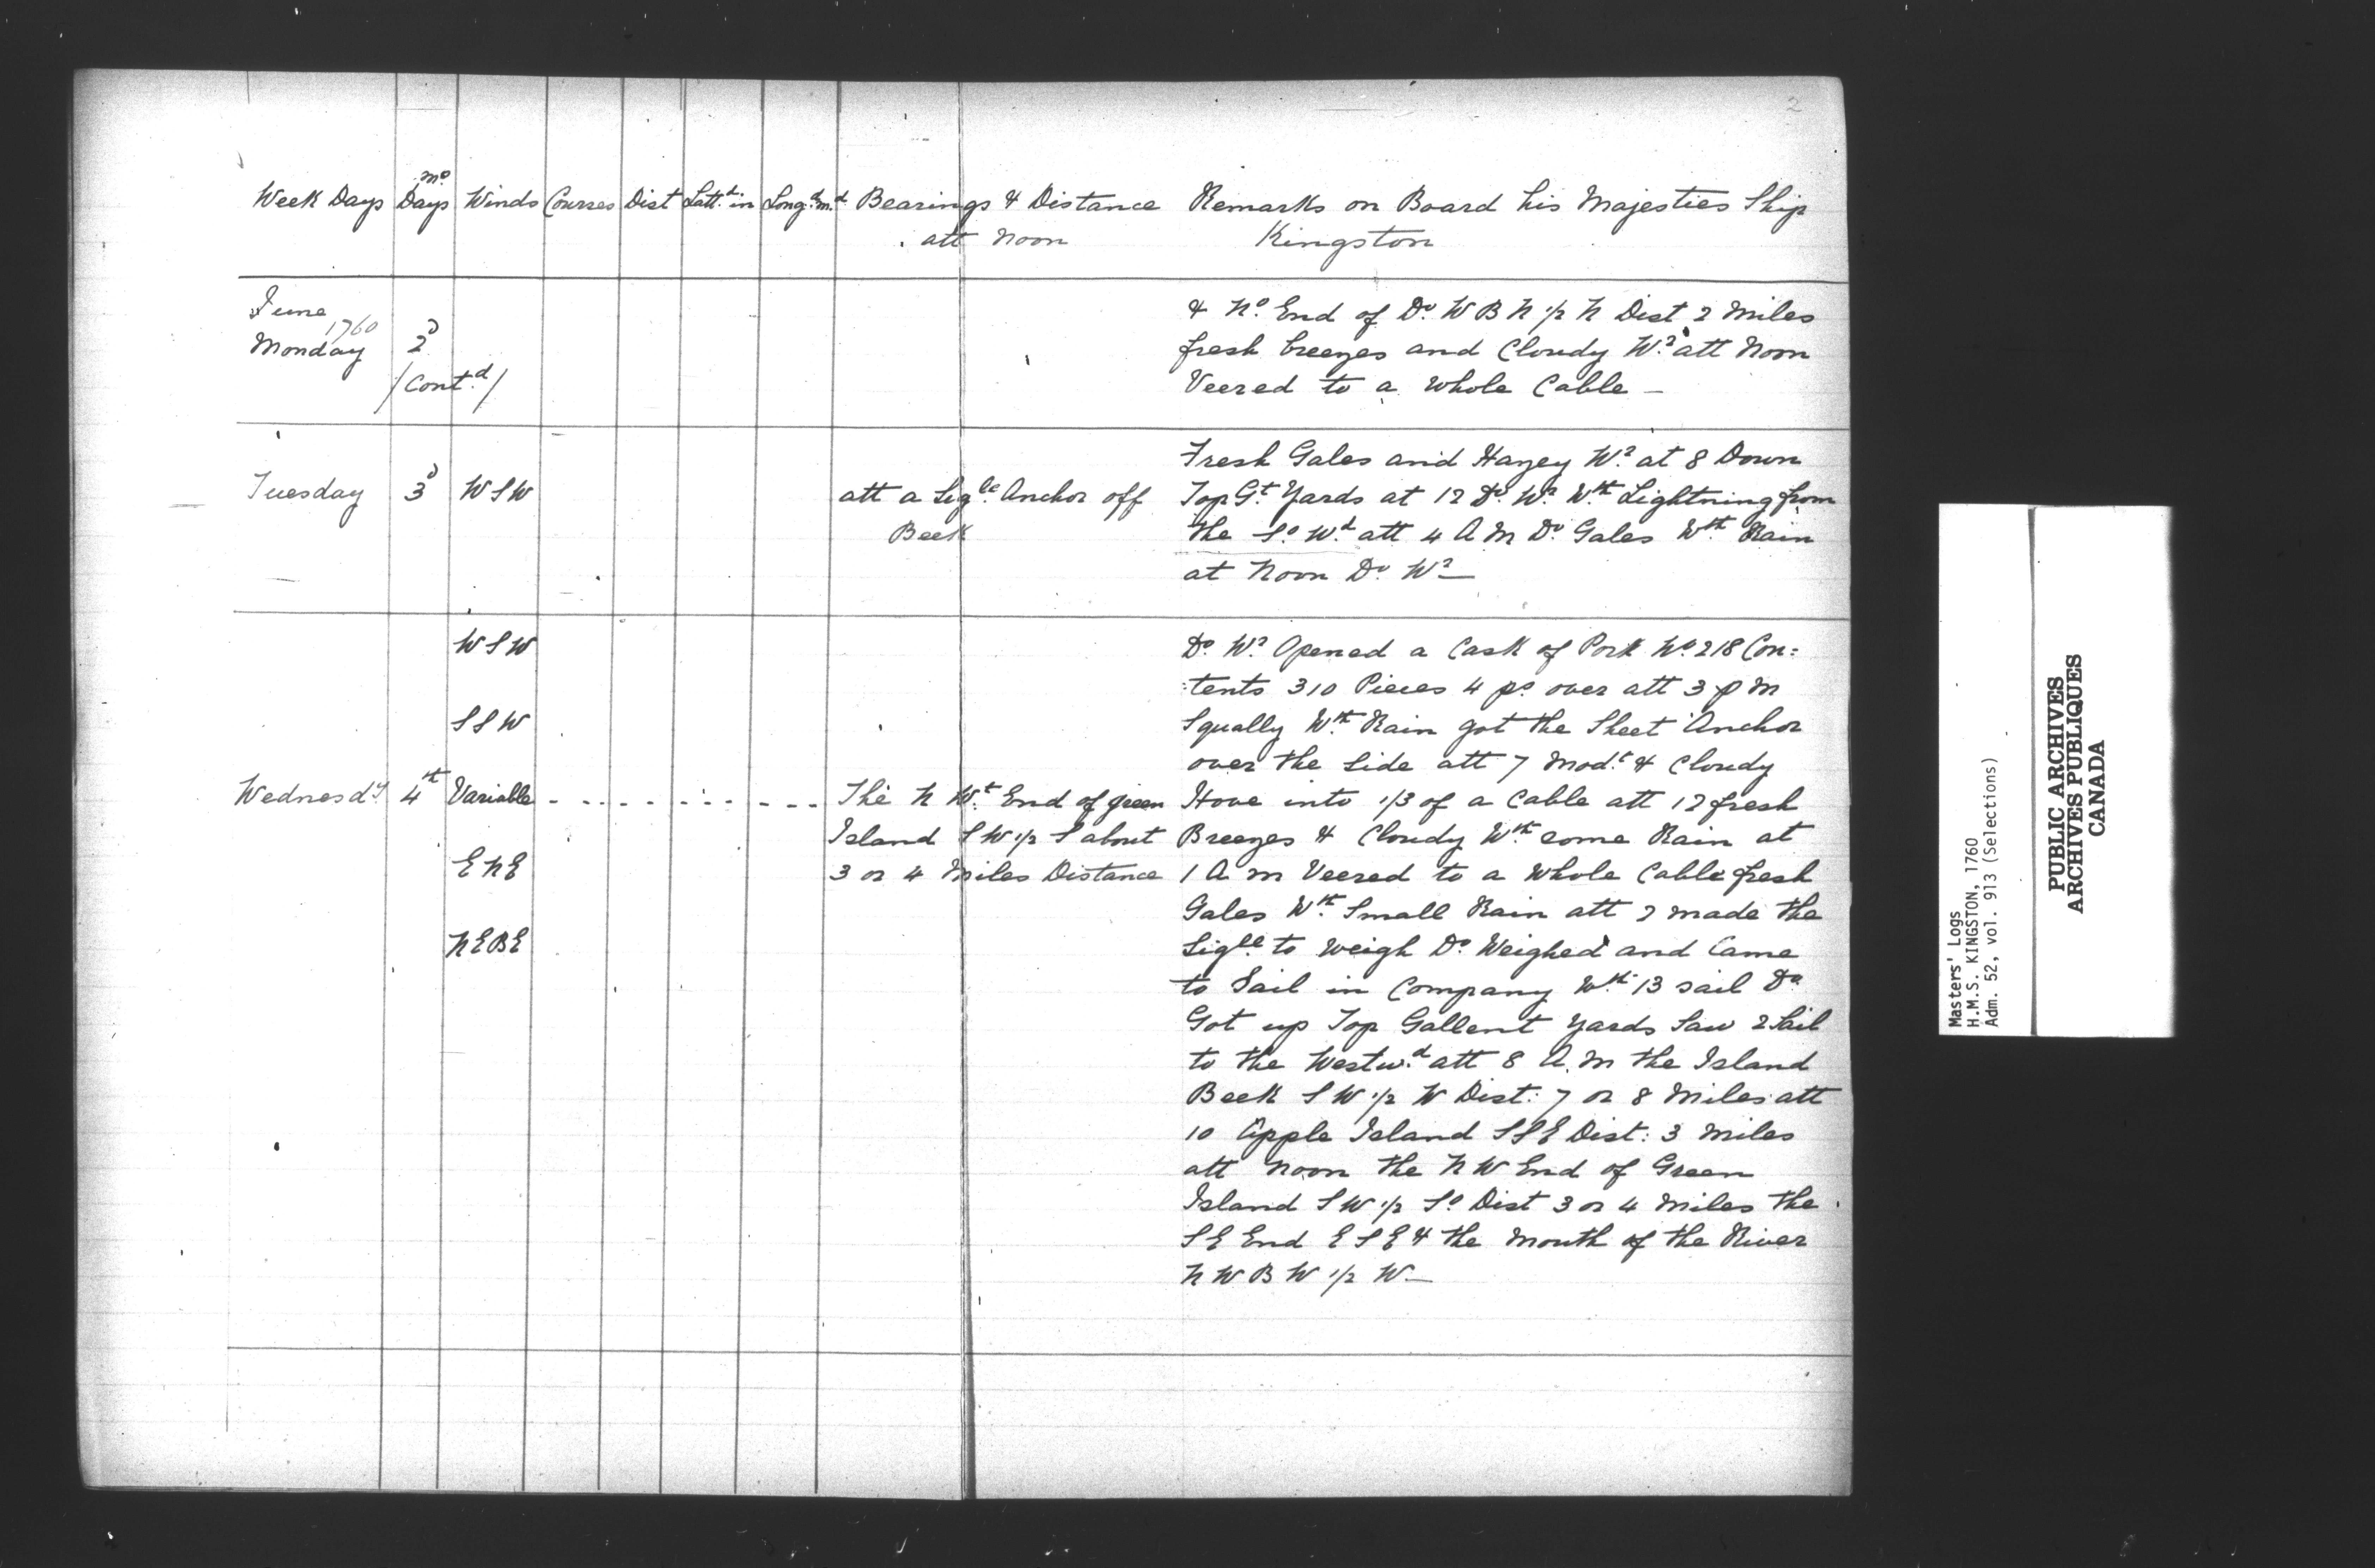 2
Week Days mo Days Winds Courses Dist Latt.d in Long.d in.d Bearings & Distance att Noon Remarks on Board his Majesties Ship Kingston
June
1760
Monday 2d
/Cont.d/
& No. End of Do. W B N 1/2 N Dist 2 Miles
fresh breezes and Cloudy Wr. att Noon
Veered to a whole Cable —
Tuesday 3d WSW
att a Sigle. Anchor off
Beek
Fresh Gales and Hazey Wr. at 8 Down
Top Gt. Yards at 12 Do. Wr. Wth. Lightning from
the So. Wd. att 4 A M Do. Gales Wth. Rain
at Noon Do. Wr —
WSW
SSW
Wednesdy. 4th Variable
ENE
NEBE
The N Wt. End of green
Island SW 1/2 S about
3 or 4 Miles Distance
Do. Wr. Opened a Cask of Pork No. 218 Con:
:tents 310 Pieces 4 ps over att 3 p m
Squally Wth. Rain got the Sheet Anchor
over the side att 7 Modt. & Cloudy
Hove into 1/3 of a Cable att 12 fresh
Breezes & Cloudy Wth. some Rain at
1 A m Veered to a whole Cable fresh
Gales Wth. Small Rain att 2 made the
Sigle. to weigh Do. Weighed and Came
to Sail in Company Wth. 13 sail Do.
Got up Top Gallent Yards Saw 2 Sail
to the Westw.d att 8 A. m the Island
Beek SW 1/2 W Dist: 7 or 8 Miles att
10 Apple Island SSE Dist: 3 Miles
att Noon the NW End of Green
Island SW 1/2 So. Dist 3 or 4 Miles the
SE End ESE & the Mouth of the River
NWBW 1/2 W —
Masters' Logs
H.M.S. KINGSTON, 1760
Adm. 52, vol. 913 (Selections)
PUBLIC ARCHIVES
ARCHIVES PUBLIQUES
CANADA